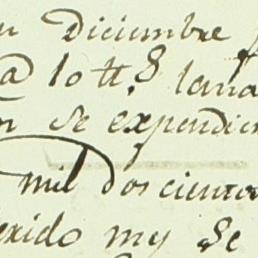 n Diciembre
a lo tt.s lana
n se expendie
mil dos ciento
exido my Se